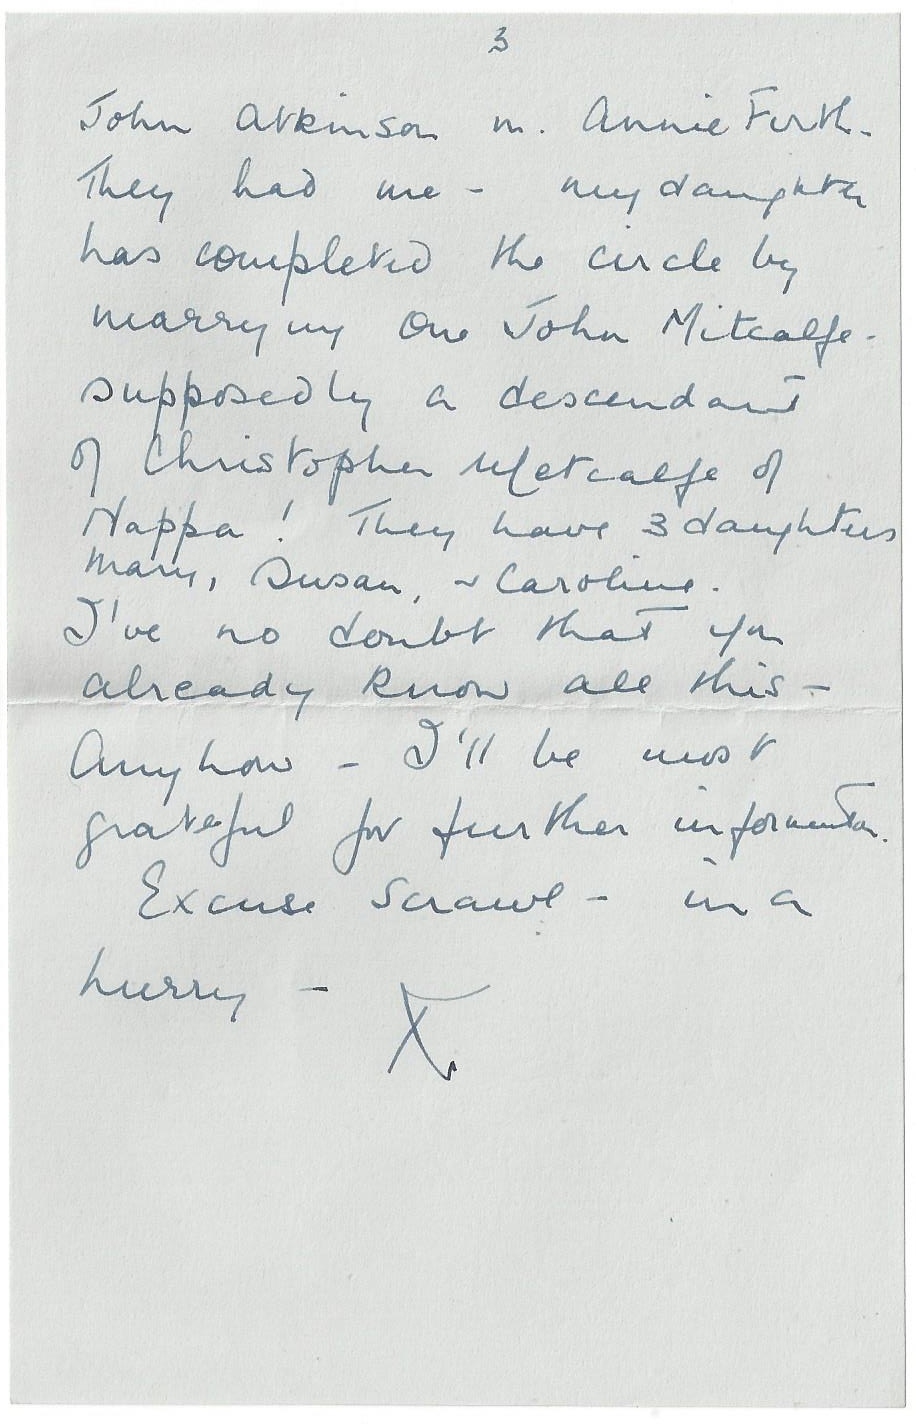 3
John Atkinson m. Annie Firth -
They had me - my daughter
has completed the circle by
marrying one John Mitcalfe -
supposedly a descendant
of Christopher Metcalfe of
Nappa! They have 3 daughters
Mary, Susan, & Caroline.
I've no doubt that you
already know all this -
Anyhow - I'll be most
grateful for further information.
Excuse scrawl - in a
hurry -
X.